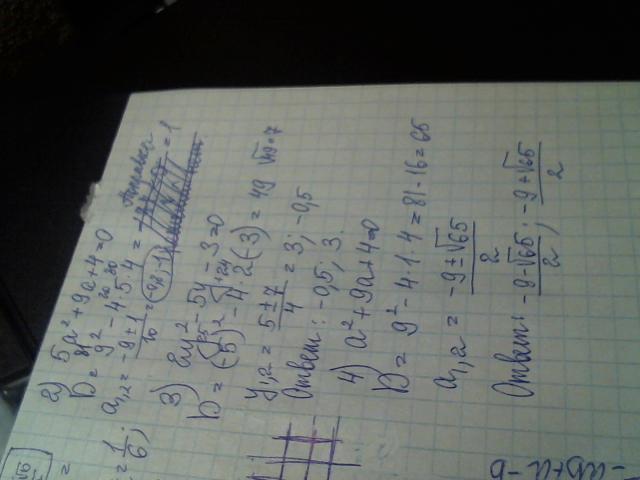 2) 5a² + 9a + 4 = 0
D = 9² - 4 · 5 · 4 = 1
a₁,₂ = (-9 ± 1)/10 =
3) 2y² - 5y - 3 = 0
D = (-5)² - 4 · 2(-3) = 49 √49 = 7
y₁,₂ = (5 ± 7)/4 = 3; -0,5
Ответ: -0,5; 3.
4) a² + 9a + 4 = 0
D = 9² - 4 · 1 · 4 = 81 - 16 = 65
a₁,₂ = (-9 ± √65)/2
Ответ: (-9 - √65)/2; (-9 + √65)/2
= 1/6;